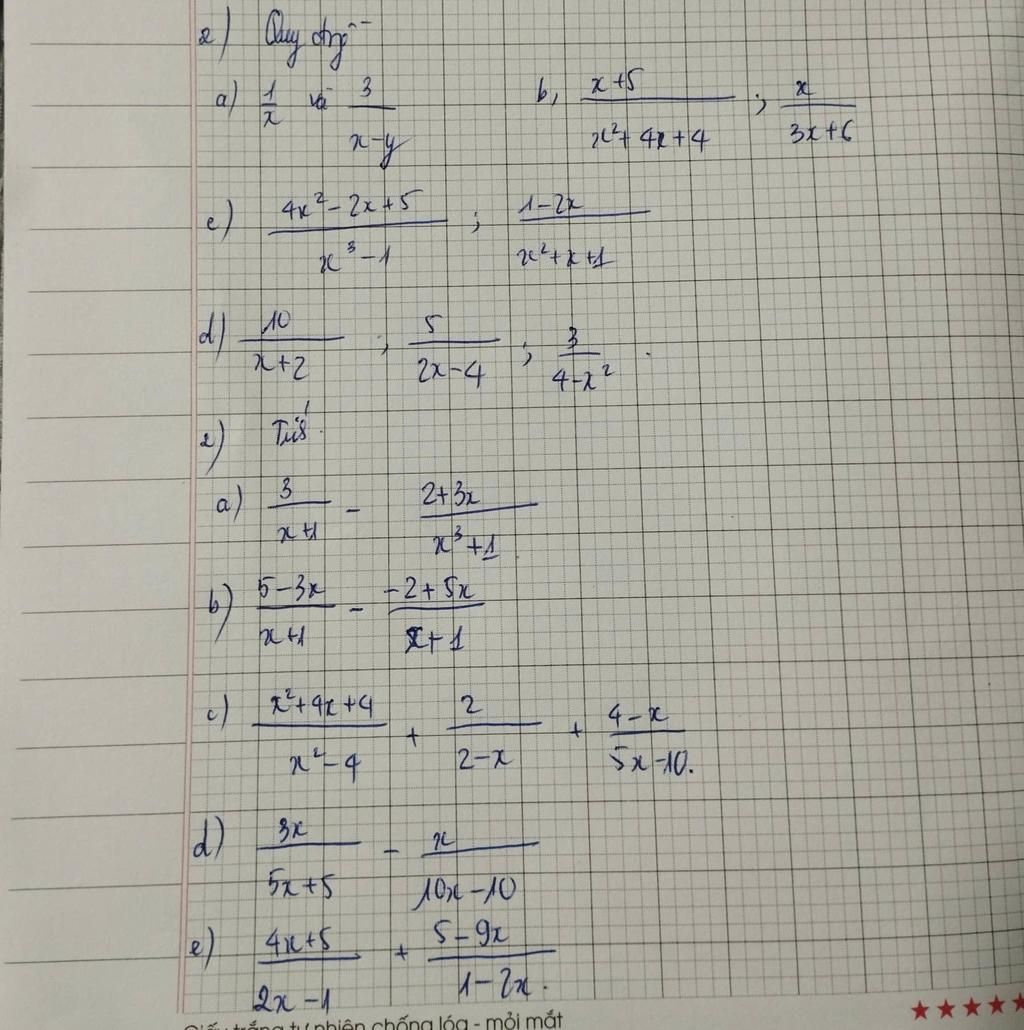 2) Quy đồng
a) 1/x và 3/(x-y) b, (x+5)/(x²+4x+4) ; x/(3x+6)
c) (4x²-2x+5)/(x³-1) ; (1-2x)/(x²+x+1)
d) 10/(x+2) ; 5/(2x-4) ; 3/(4-x²) .
2)
a) 3/(x+1) - (2+3x)/(x³+1)
b) (5-3x)/(x+1) - (-2+5x)/(x+1)
c) (x²+4x+4)/(x²-4) + 2/(2-x) + (4-x)/(5x-10).
d) 3x/(5x+5) - x/(10x-10)
e) (4x+5)/(2x-1) + (5-9x)/(1-2x).
Giấy trắng tự nhiên chống lóa - mỏi mắt